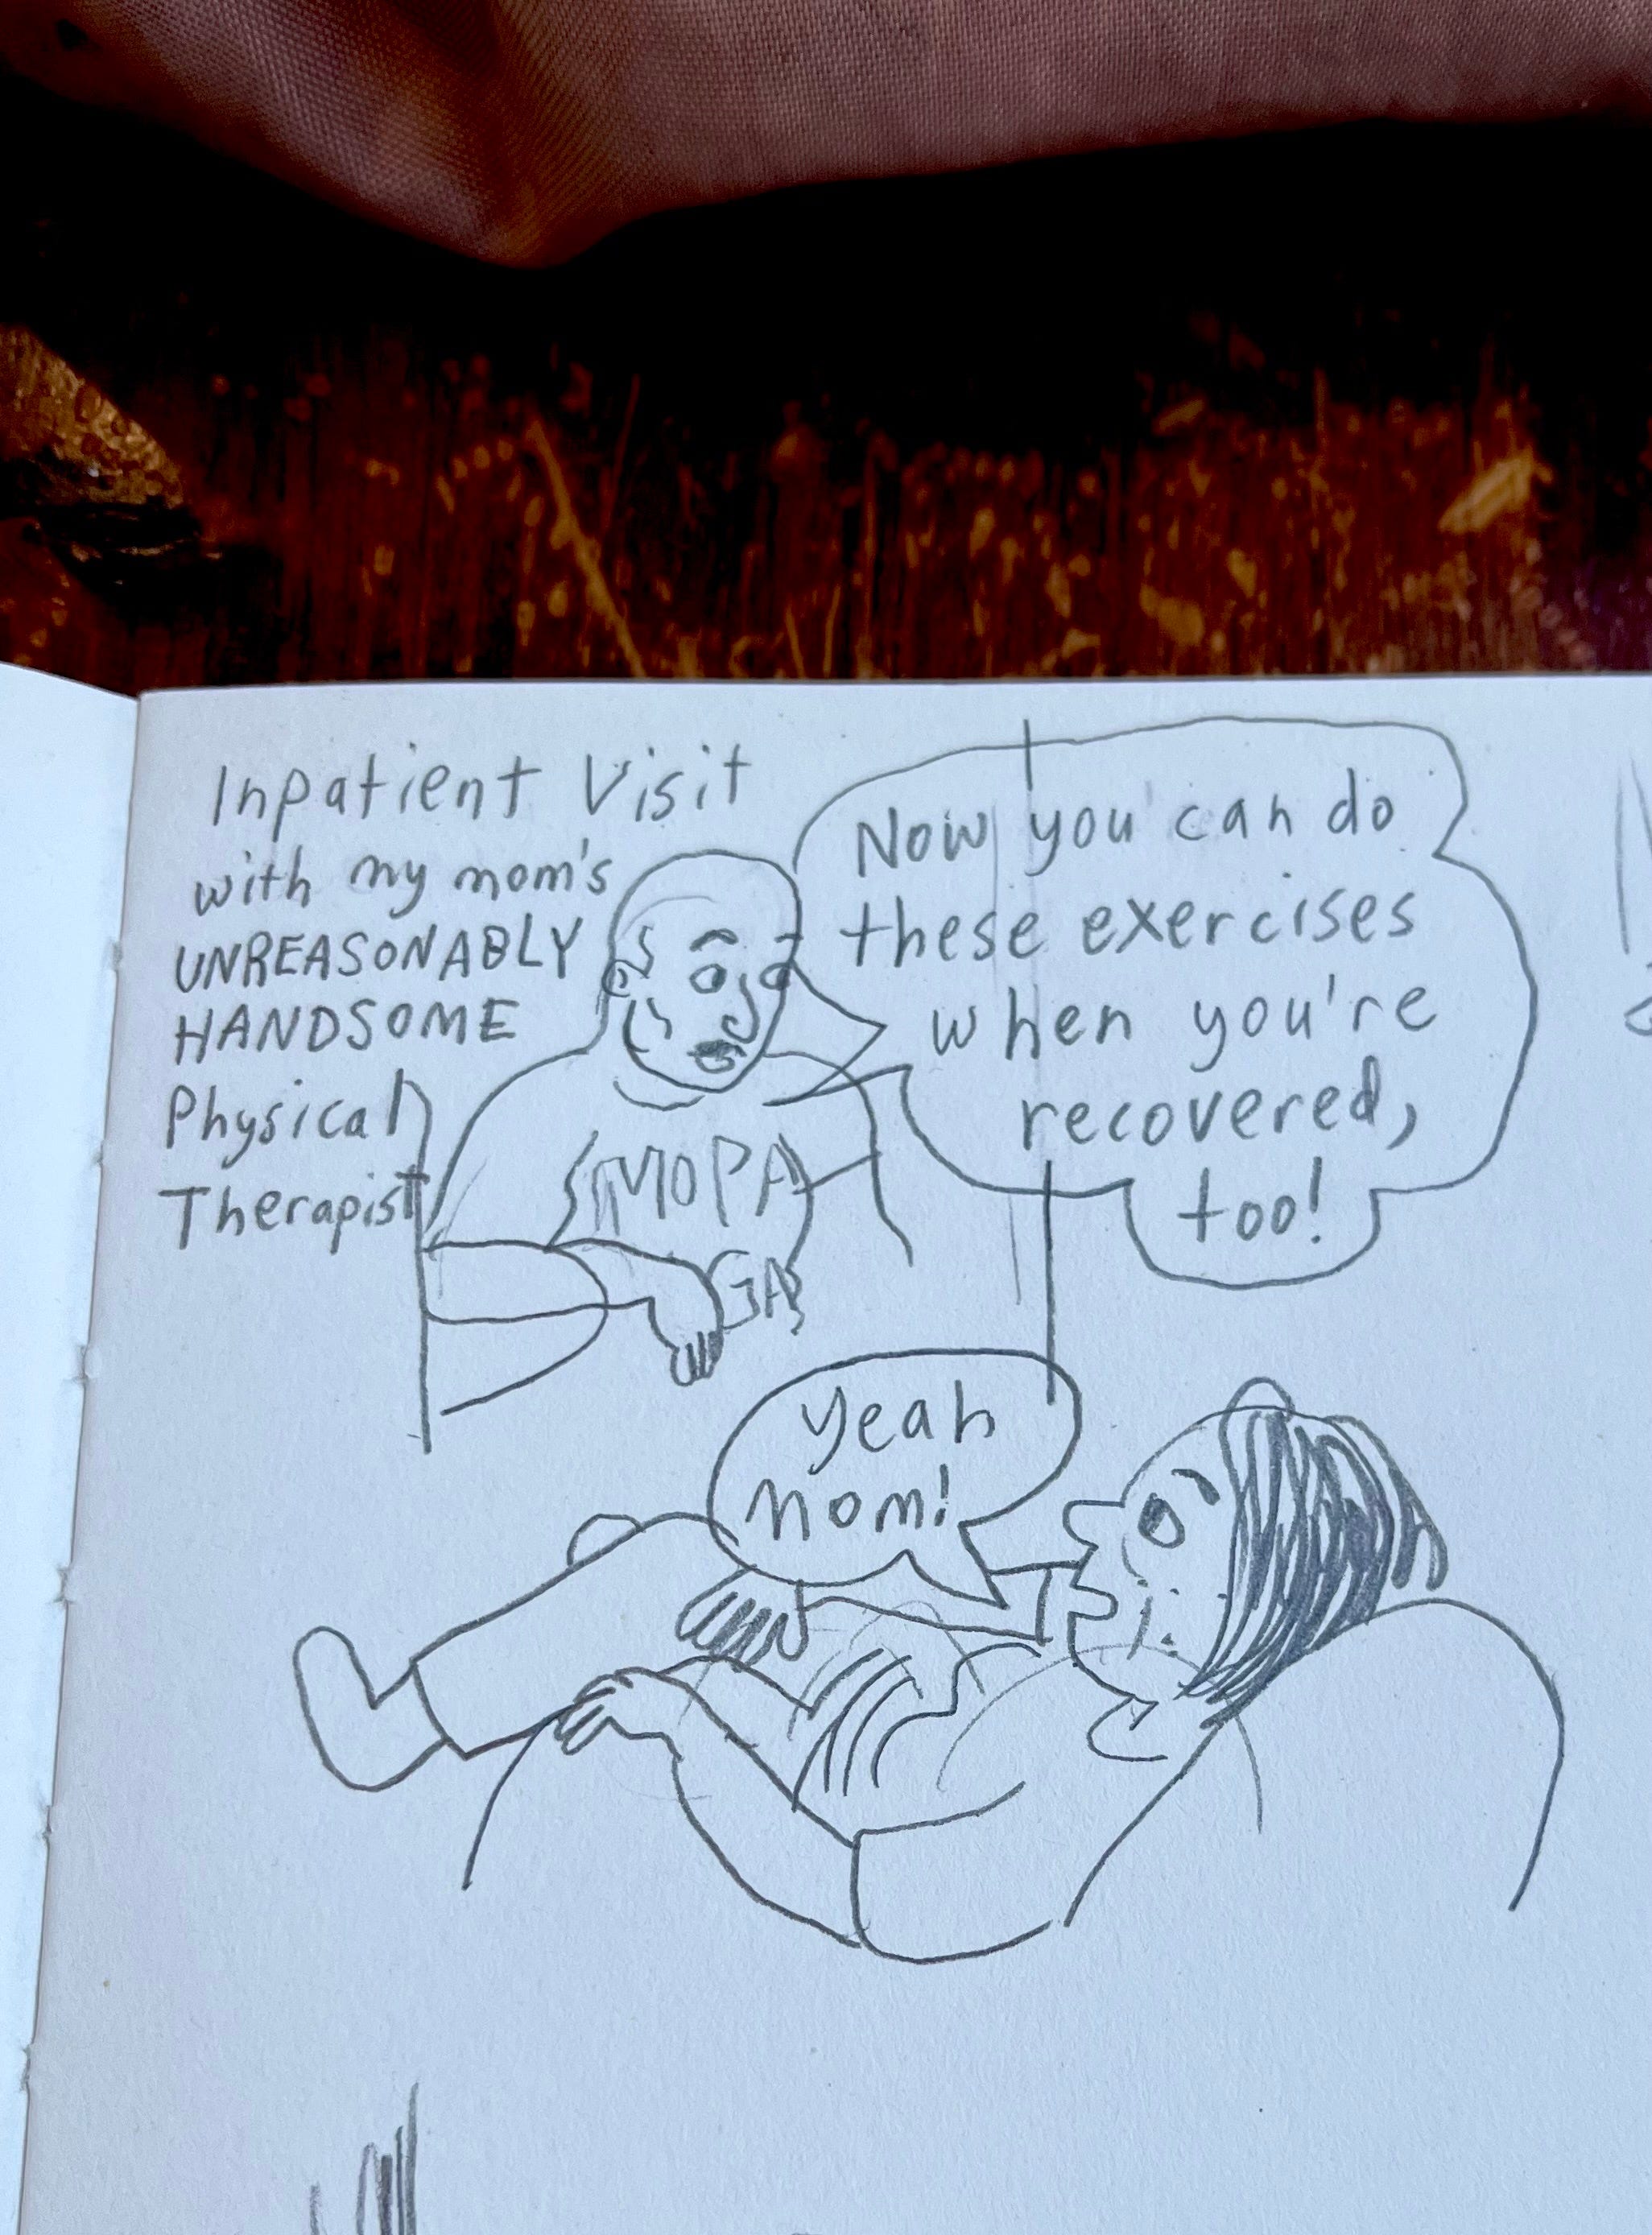 Inpatient Visit
with my mom's
UNREASONABLY
HANDSOME
Physical
Therapist
Now you can do
these exercises
when you're
recovered,
too!
MOPA
GA
yeah
mom!